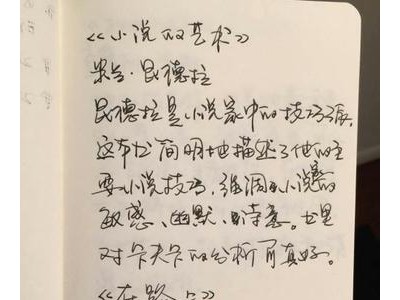 《小说的艺术》
米兰·昆德拉
昆德拉是小说家中的技巧派。
这本书简明地描述了他的主
要小说技巧，强调了小说的
敏感、幽默、诗意。书里
对卡夫卡的分析可真好。
《在路上》